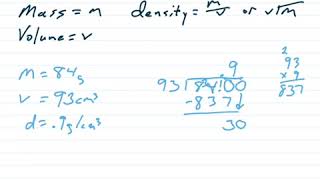 Mass = m density = m/v or v√m
Volume = v
m = 84g
v = 93cm³
d = .9g/cm³
.9
93√84.00
-837↓
30
2
93
x 9
837